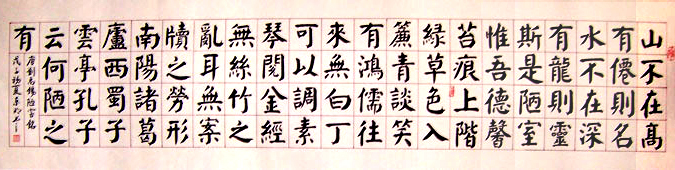 山不在高
有僊則名
水不在深
有龍則靈
斯是陋室
惟吾德馨
苔痕上階
綠草色入
簾青談笑
有鴻儒往
來無白丁
可以調素
琴閱金經
無絲竹之
亂耳無案
牘之勞形
南陽諸葛
廬西蜀子
雲亭孔子
云何陋之
有
唐劉禹錫陋室銘
戊子